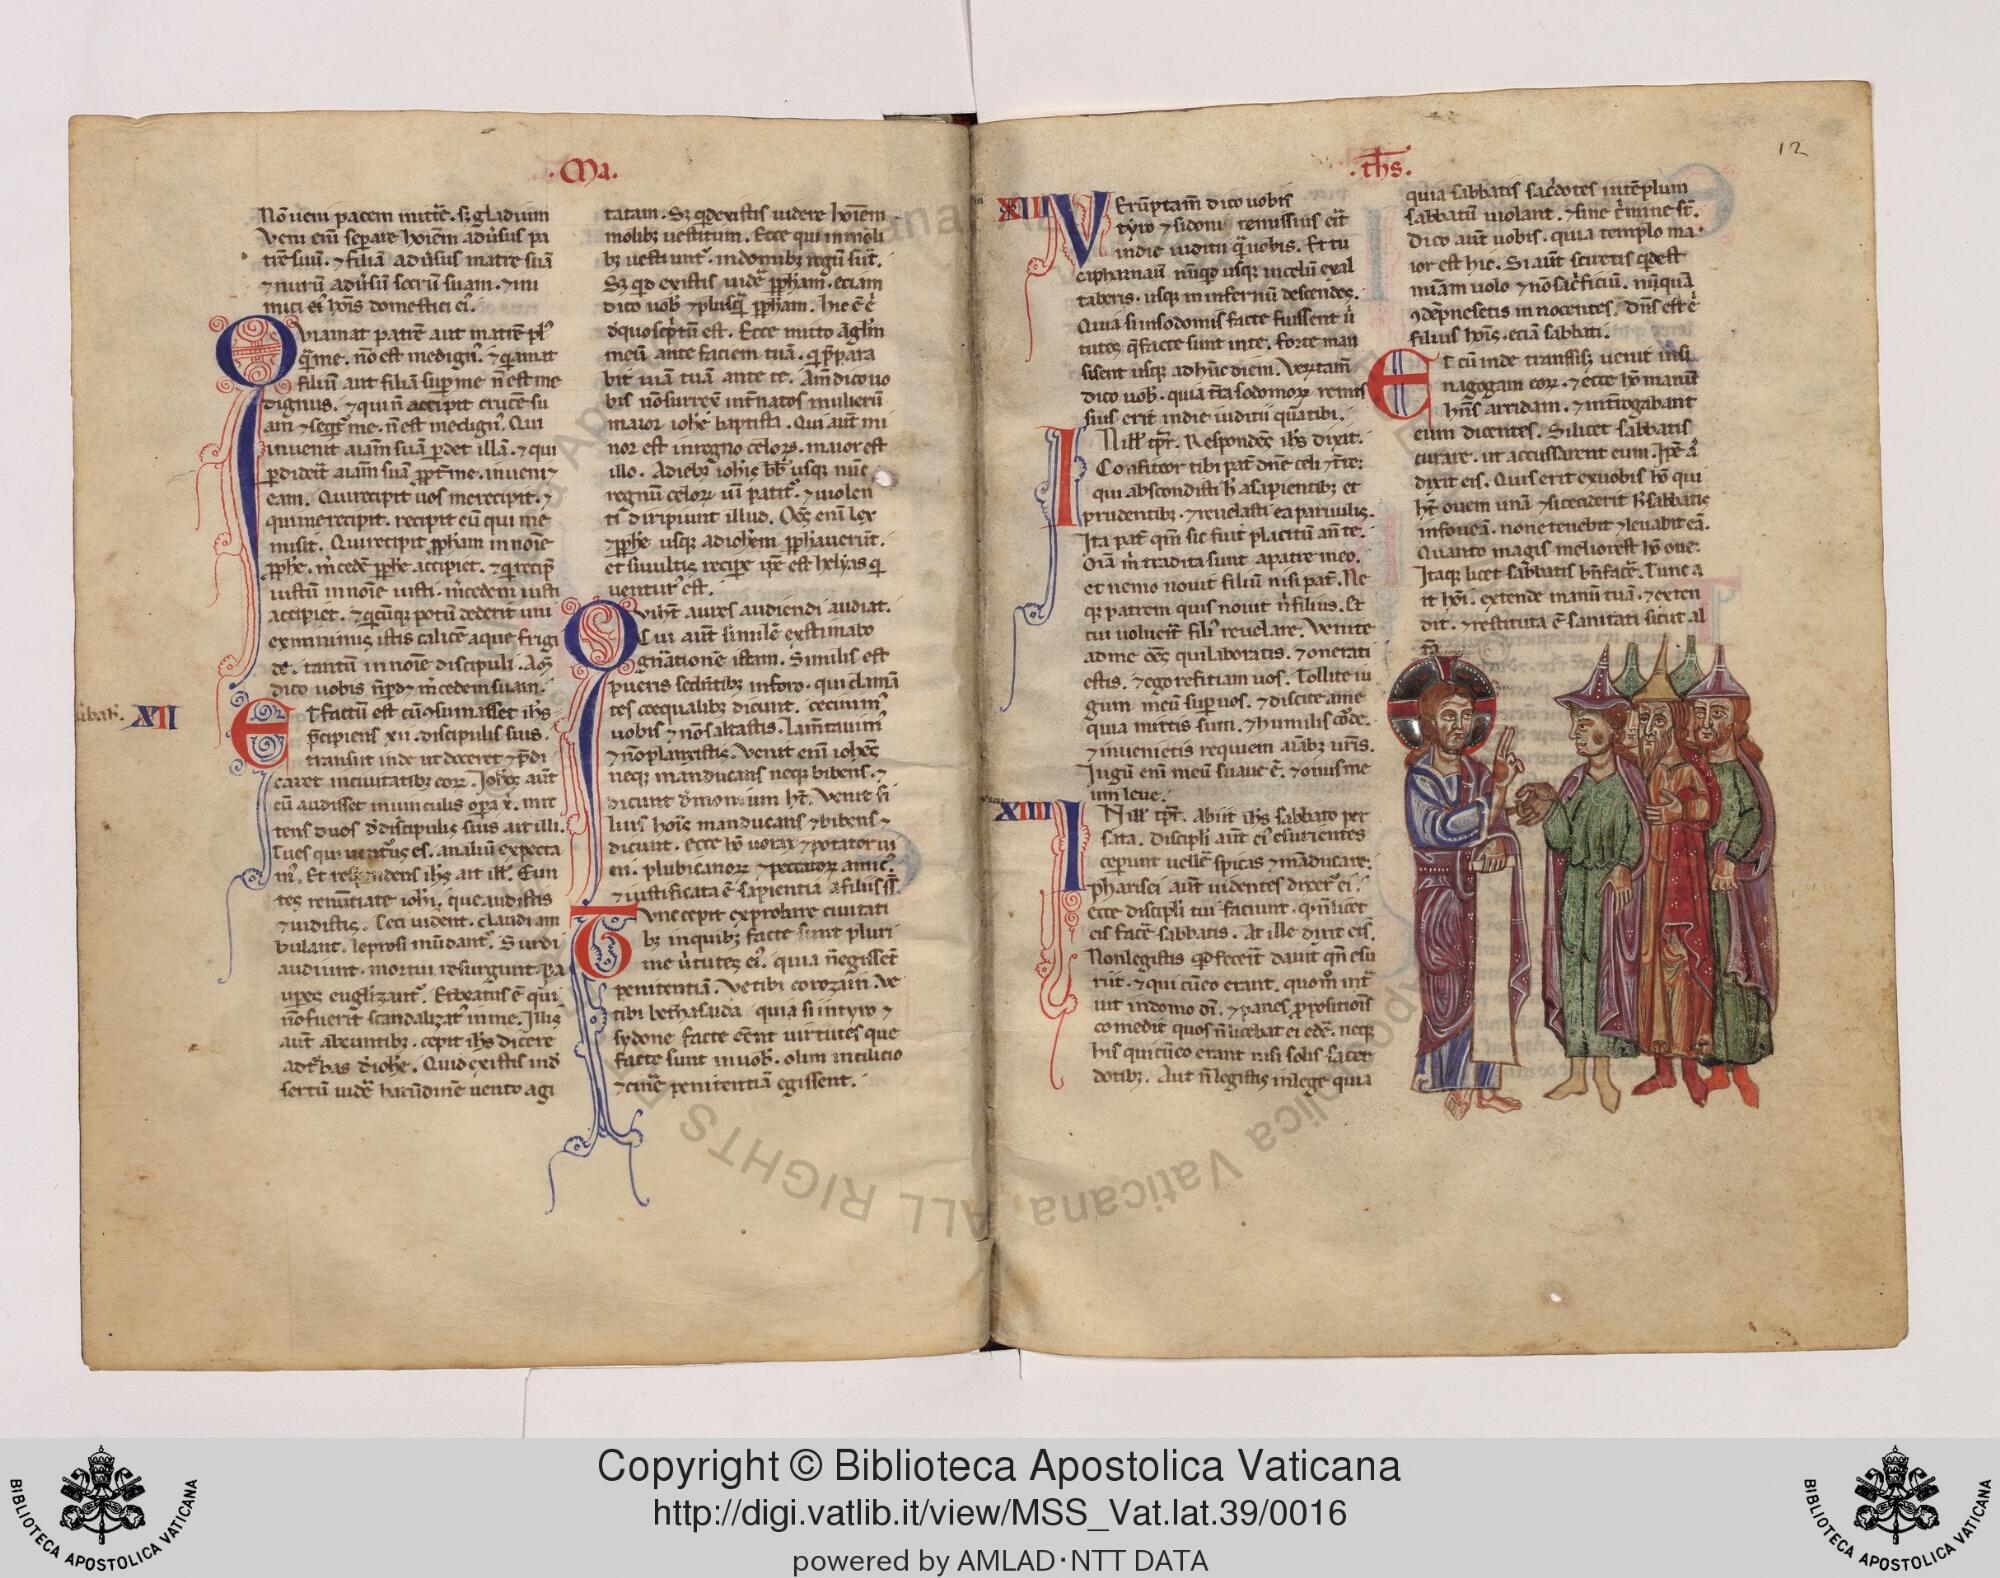 ·Ma·
Nō ueni pacem mitt̄e. sꝫ gladium
Veni eni᷒ separe hoīem aduʼsus pa
trē suū. ⁊ filiā aduʼsus matre suā
⁊ nurū aduʼsū socrū suam. ⁊ ini
mici eiʼ hoīs domestici eiʼ.
Qui amat patrē aut matrē plʼ
q̄ me. nō est me dignʼ. ⁊ q̇ amat
filiū aut filiā sup me n̄ est me
dignus. ⁊ qui n̄ accipit crucē su
am ⁊ seq̇tʼ me. n̄ est me dignʼ. Qui
inuenit aīam suā ꝑdet illā. ⁊ qui
ꝑdideit̄ aīam suā ꝓpt̄ me. inueniꝫ
eam. Qui recipit uos me recipit. ⁊
qui me recipit. recipit eū qui me
misit. Qui recipit ꝓpham in noīe
ꝓphe. m̓cedē ꝓphe accipiet. ⁊ q̇ recip̄
iustū in noīe iusti. m̓cedem iusti
accipiet. ⁊ q̇cūqꝫ potū dederit uni
ex minimis istis calicē aque frigi
de. tantū in noīe discipuli. Am̄
dico uobis n̄ ꝑdꝫ m̓cedem suam.
XII
Et factū est cū ꝯsumasset ihs̄
p̄cipiens xii. discipulis suis.
transiit inde ut doceret ⁊ p̄di
caret in ciuitatibꝫ eorꝫ. Iohēs aut̄
cū audisset in uinculis oꝑa x̄. mit
tens duos d̓ discipulis suis ait illi.
Tu es qui uentʼus es. an aliū expecta
mʼ. Et respondens ihs̄ ait illʼ. Eun
tes renūtiate iohī. que audistis
⁊ uidistis. Ceci uident. claudi am
bulant. leprosi mūdantʼ. Surdi
audiunt. mortui resurgunt. pa
uꝑes euglizantʼ. Et beatus ē qui
nō fuerit̄ scandalizatʼ in me. Illis
aut̄ abeuntibꝫ. cepit ihs̄ dicere
ad tʼbas d̓ iohē. Quid existis in d̓
sertū uidʼe harūdinē uento agi
tatam. Sꝫ qd̓ existis uidere hoīem
mollibꝫ uestitum. Ecce qui in molli
bꝫ uestiuntʼ. in domibꝫ regū sūt̄.
Sꝫ qd̓ existis uidʼe ꝓpham. etiam
dico uobʼ ⁊ plus q̄ ꝓpham. hic ē ē
d̓ quo sc̓ptū est. Ecce mitto āglm̄
meū ante faciem tuā. q̇ p̄para
bit uiā tuā ante te. Am̄ dico uo
bis nō surrexʼ int̄ natos mulierū
maior iohē baptista. Qui aut̄ mi
nor est in regno celorꝫ. maior est
illo. A diebꝫ iohis bb̄ usqꝫ nūc
regnū celorꝫ uī patitʼ. ⁊ uiolen
ti diripiunt illud. Oēs enī lex
⁊ ꝓphe usqꝫ ad iohem ꝓphauerūt.
et si uultis recipe ipē est helyas q̇
uenturʼ est.
Qui ht̄ aures audiendi audiat.
Cui aut̄ similē existimabo
gn̄ationē istam. Similis est
pueris sedn̄tibꝫ in foro. qui clamā
tes coequalibꝫ dicunt. cecinimʼ
uobis ⁊ nō saltastis. lam̄tauimʼ
⁊ nō planxistis. Venit enī iohēs
neqꝫ manducans neqꝫ bibens. ⁊
dicunt d̓monium ht̄. Venit fi
lius hoīs manducans ⁊ bibens ⁊
dicunt. Ecce hō uorax ⁊ potator ui
ni. plubicanorꝫ ⁊ peccatorꝫ amicʼ.
⁊ iustificata ē sapientia a filiis s̄.
Tunc cepit exprobare ciuitati
bꝫ in quibꝫ facte sunt pluri
me uʼtutes eiʼ. quia n̄ egissēt
penitentiā. Ve tibi corozain. Ve
tibi bethasaida. quia si in tyro ⁊
sydone facte eēnt uirtutes que
facte sunt in uobʼ. olim in cilicio
⁊ cinʼe penitentiā egissent.
·ths̄·
12
XIII
Verūptam̄ dico uobis
tyro ⁊ sidoni remissius eit̄
in die iuditii q̄ uobis. Et tu
capharnaū nūqd̓ usqꝫ in celū exal
taberis. usqꝫ in infernū descendes.
Quia si in sodomis facte fuissent uʼ
tutes q̄ facte sunt in te. forte man
sisent usqꝫ ad hūc diem. Verūtam̄
dico uobʼ. quia t̄ra sodomorꝫ remis
sius erit in die iuditii quā tibi.
In illʼ tp̄r. Respondēs ihs̄ dixit.
Confiteor tibi patʼ dn̄e celi ⁊ t̄re.
qui abscondisti hʼ a sapientibꝫ et
prudentibꝫ. ⁊ reuelasti ea paruulis.
Ita patʼ qm̄ sic fuit placitū an̄ te.
Oīa m̓ tradita sunt a patre meo.
et nemo nouit filiū nisi patʼ. Ne
qꝫ patrem quis nouit n̓ filius. Et
cui uoluerit filiʼ reuelare. Venite
ad me oēs qui laboratis. ⁊ onerati
estis. ⁊ ego reficiam uos. Tollite iu
gum meū sup uos. ⁊ discite a me
quia mittis sum. ⁊ humilis co̓de.
⁊ inuenietis requiem aīabꝫ ur̄is.
Iugū enī meū suaue ē. ⁊ onus me
um leue.
XIIII
In illʼ tp̄r. Abiit ihs̄ sabbato per
sata. discipli aut̄ eiʼ esurientes
ceperunt uellʼe spicas ⁊ māducare.
pharisei aut̄ uidentes dixerʼ ei.
ecce discipli tui faciunt. q̇ n̄ licet
eis facʼe sabbatis. At ille dixit eis.
Non legistis qd̓ feceit̄ dauit qn̄ esu
riit. ⁊ qui cū eo erant. quom̊ int̄
uit in domo dī. ⁊ panes ꝓpositiois
comedit quos n̄ licebat ei edʼe. neqꝫ
his qui cū eo erant nisi solis sacer
dotibꝫ. Aut n̄ legistis in lege quia
quia sabbatis sac̓dotes in tēplum
sabbatū uiolant. ⁊ sine c̓mine st̄.
Dico aut̄ uobis. quia templo ma
ior est hic. Si aut̄ sciretis qd̓ est
mīam uolo ⁊ nō sac̓ficiū. nūquā
ꝯdēpnesetis innocentes. dn̄s est ē
filius hoīs. etiā sabbati.
Et cū inde transissꝫ uenit in si
nagogam eorꝫ. ⁊ ecce hō manū
hn̄s arridam. ⁊ int̄rogabant
eum dicentes. Si licet sabbatis
curare. ut accussarent eum. Ipē aʼ
dixit eis. Quis erit ex uobis hō qui
ht̄ ouem unā ⁊ si ceciderit hʼ sabbatis
in foueā. none tenebit ⁊ leuabit eā.
Quanto magis melior est hō oue.
Itaqꝫ licet sabbatis bn̄ facʼe. Tunc a
it hoī. extende manū tuā. ⁊ exten
dit. ⁊ restituta ē sanitati sicut al
t̄a
Copyright © Biblioteca Apostolica Vaticana
http://digi.vatlib.it/view/MSS_Vat.lat.39/0016
powered by AMLAD·NTT DATA
BIBLIOTECA APOSTOLICA VATICANA
BIBLIOTECA APOSTOLICA VATICANA